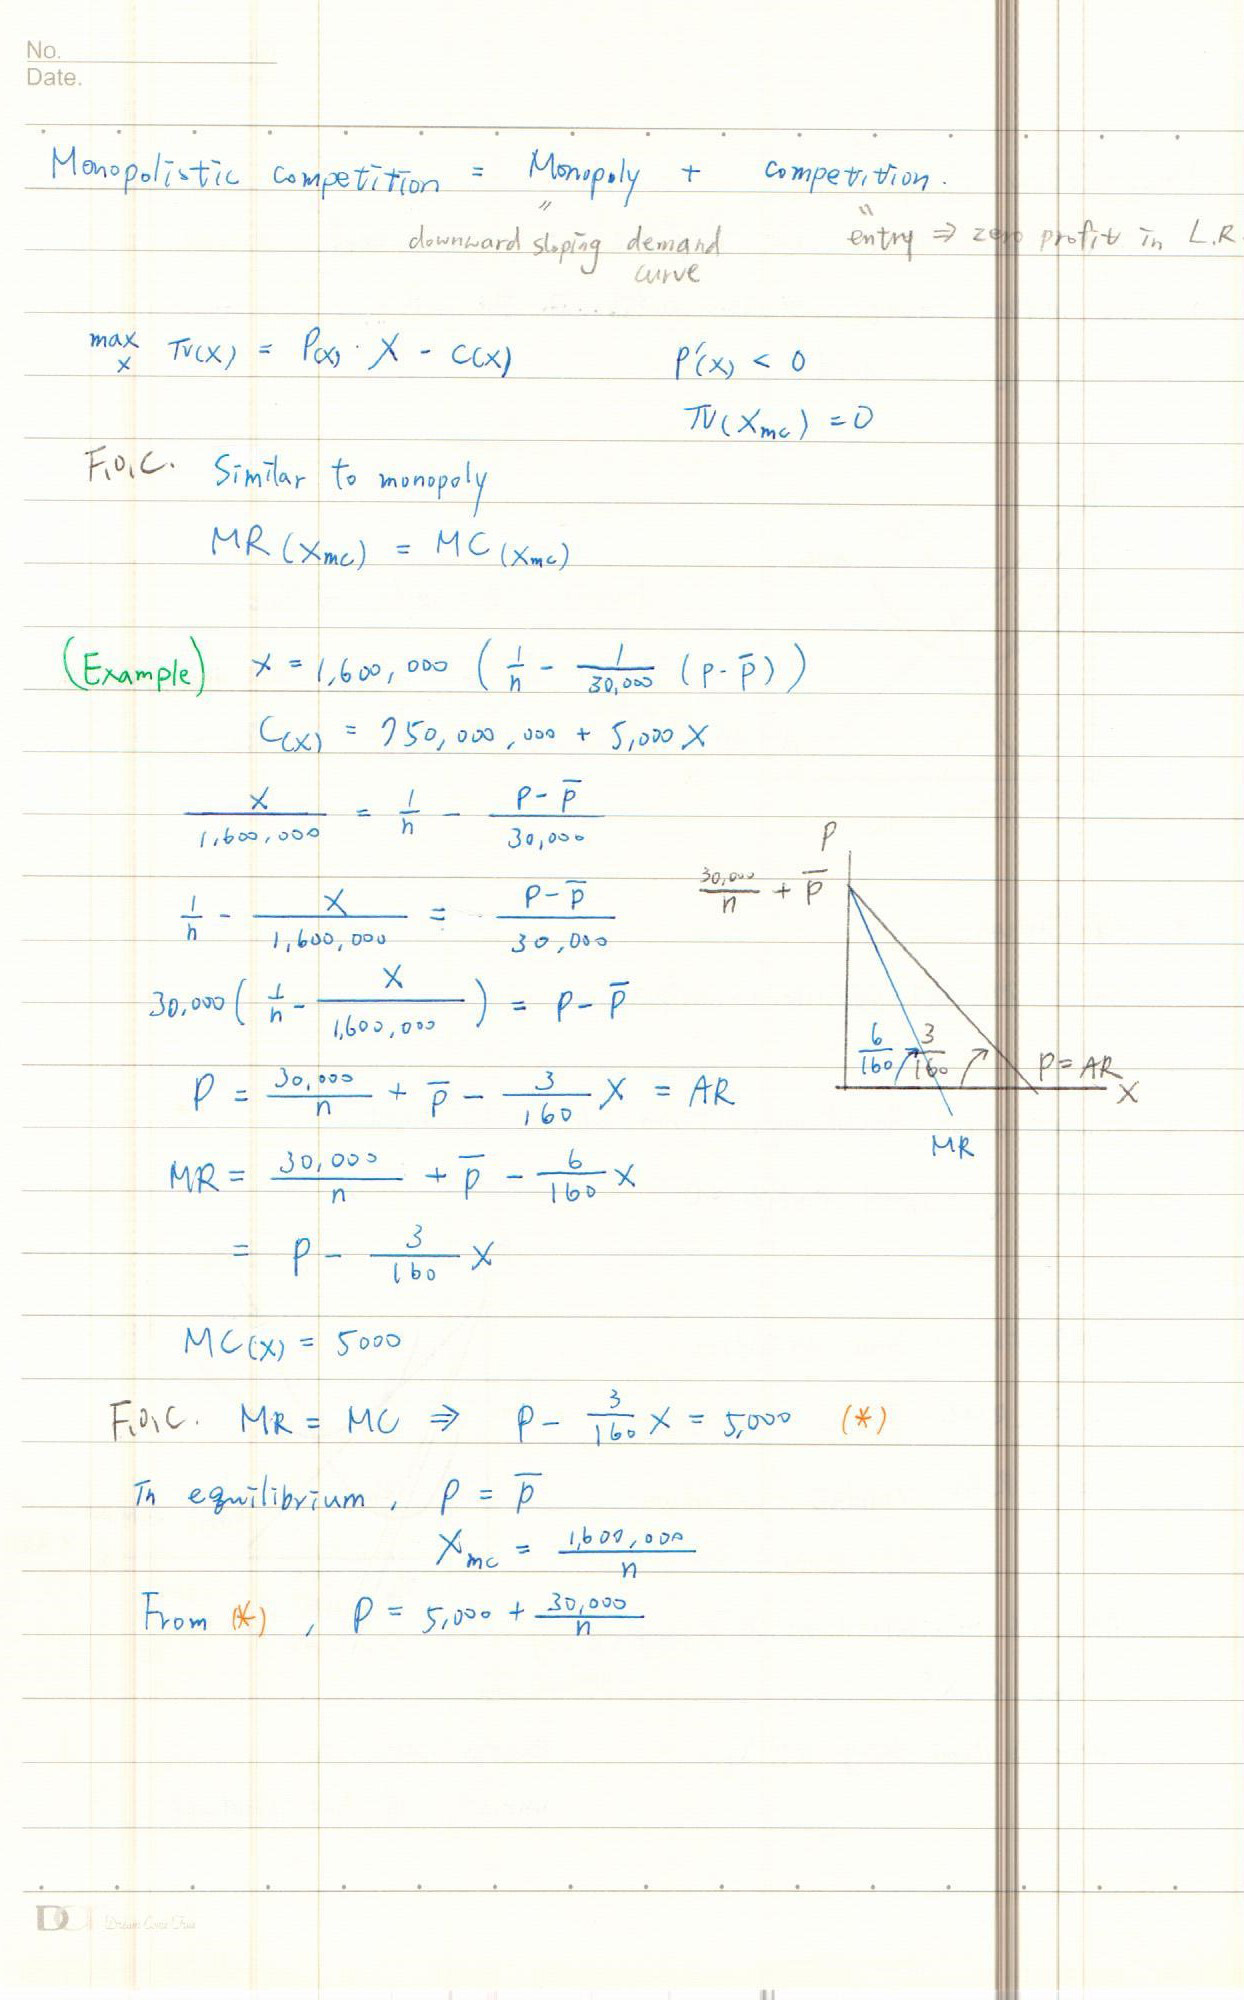 No.
Date.
Monopolistic competition = Monopoly + competition.
" "
downward sloping demand curve entry ⇒ zero profit in L.R.
max x π(x) = P(x) · X - C(x) P'(x) < 0
π(Xmc) = 0
F.O.C. Similar to monopoly
MR(Xmc) = MC(Xmc)
(Example) x = 1,600,000 ( 1/n - 1/30,000 (p - p̄))
C(x) = 750,000,000 + 5,000 X
X/1,600,000 = 1/n - (p - p̄)/30,000
1/n - X/1,600,000 = (p - p̄)/30,000
30,000 ( 1/n - X/1,600,000 ) = p - p̄
P = 30,000/n + p̄ - 3/160 X = AR
MR = 30,000/n + p̄ - 6/160 X
= P - 3/160 X
P
30,000/n + p̄
6/160 3/160 P = AR
X
MR
MC(X) = 5000
F.O.C. MR = MC ⇒ P - 3/160 X = 5,000 (*)
In equilibrium, P = p̄
Xmc = 1,600,000/n
From (*), P = 5,000 + 30,000/n
Dream Come True